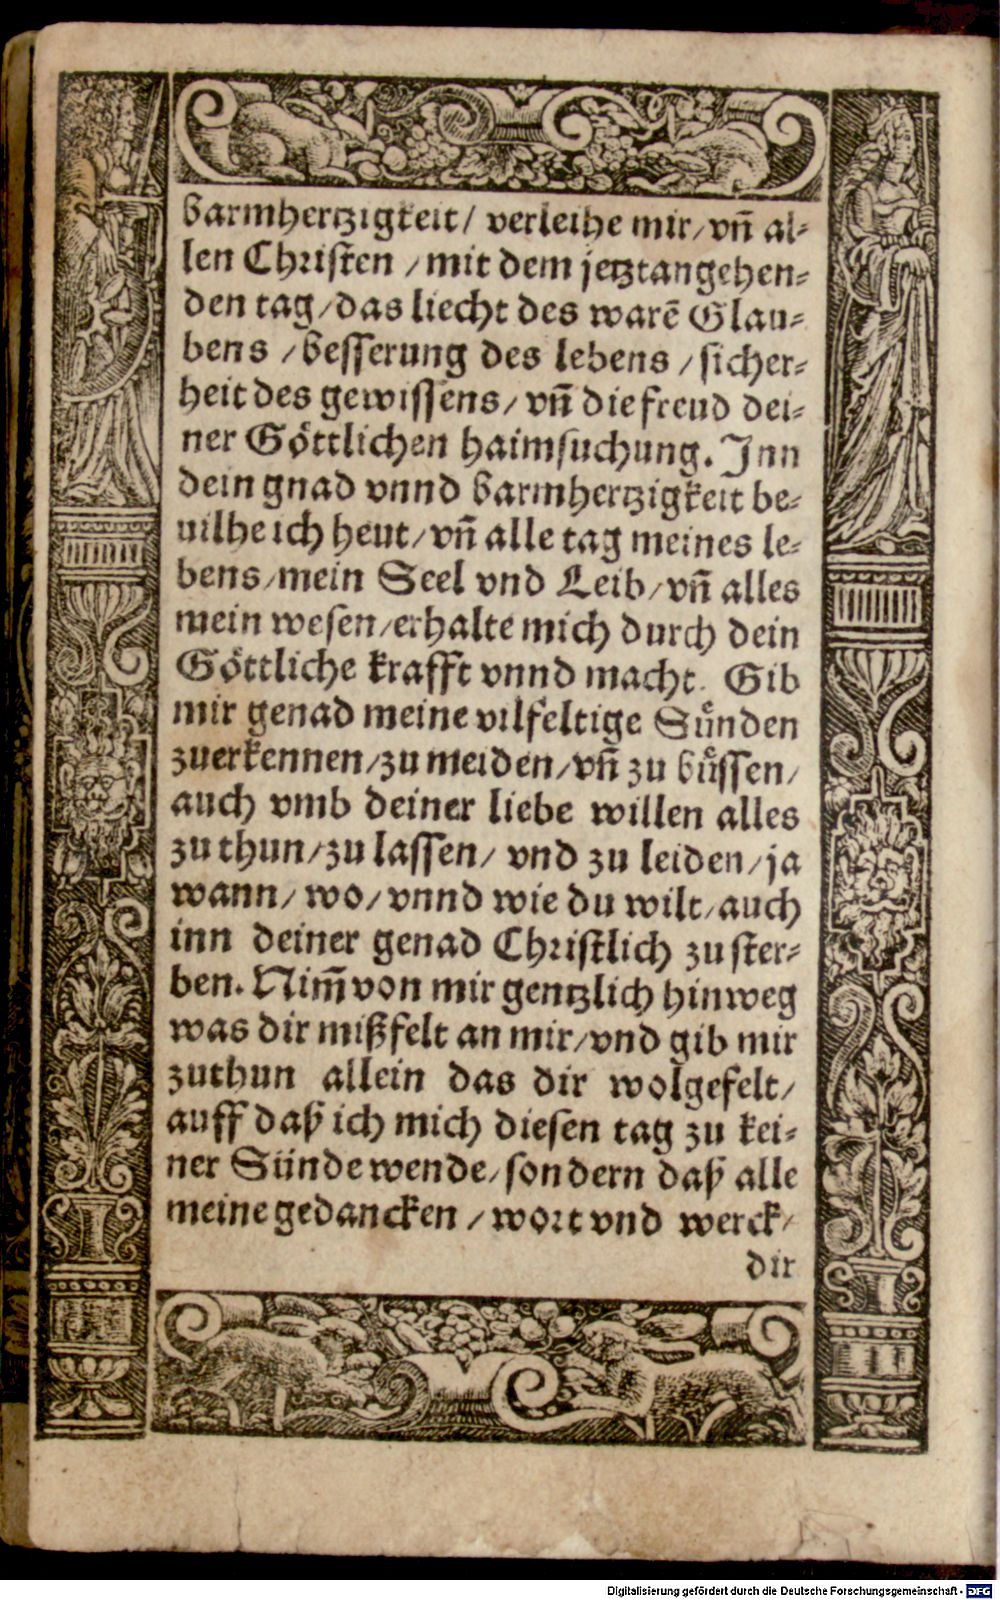 barmhertzigkeit/ verleihe mir/ vñ al-
len Christen / mit dem jetztangehen-
den tag/ das liecht des warẽ Glau-
bens / besserung des lebens / sicher-
heit des gewissens/ vñ die freud dei-
ner Göttlichen haimsuchung. Inn
dein gnad vnnd barmhertzigkeit be-
uilhe ich heut/ vñ alle tag meines le-
bens/ mein Seel vnd Leib/ vñ alles
mein wesen/ erhalte mich durch dein
Göttliche krafft vnnd macht. Gib
mir genad meine vilfeltige Sünden
zuerkennen/ zu meiden/ vñ zu büssen/
auch vmb deiner liebe willen alles
zu thun/ zu lassen/ vnd zu leiden/ ja
wann/ wo/ vnnd wie du wilt/ auch
inn deiner genad Christlich zu ster-
ben. Nim̃ von mir gentzlich hinweg
was dir mißfelt an mir/ vnd gib mir
zuthun allein das dir wolgefelt/
auff daß ich mich diesen tag zu kei-
ner Sünde wende/ sondern daß alle
meine gedancken / wort vnd werck/
dir
Digitalisierung gefördert durch die Deutsche Forschungsgemeinschaft - DFG